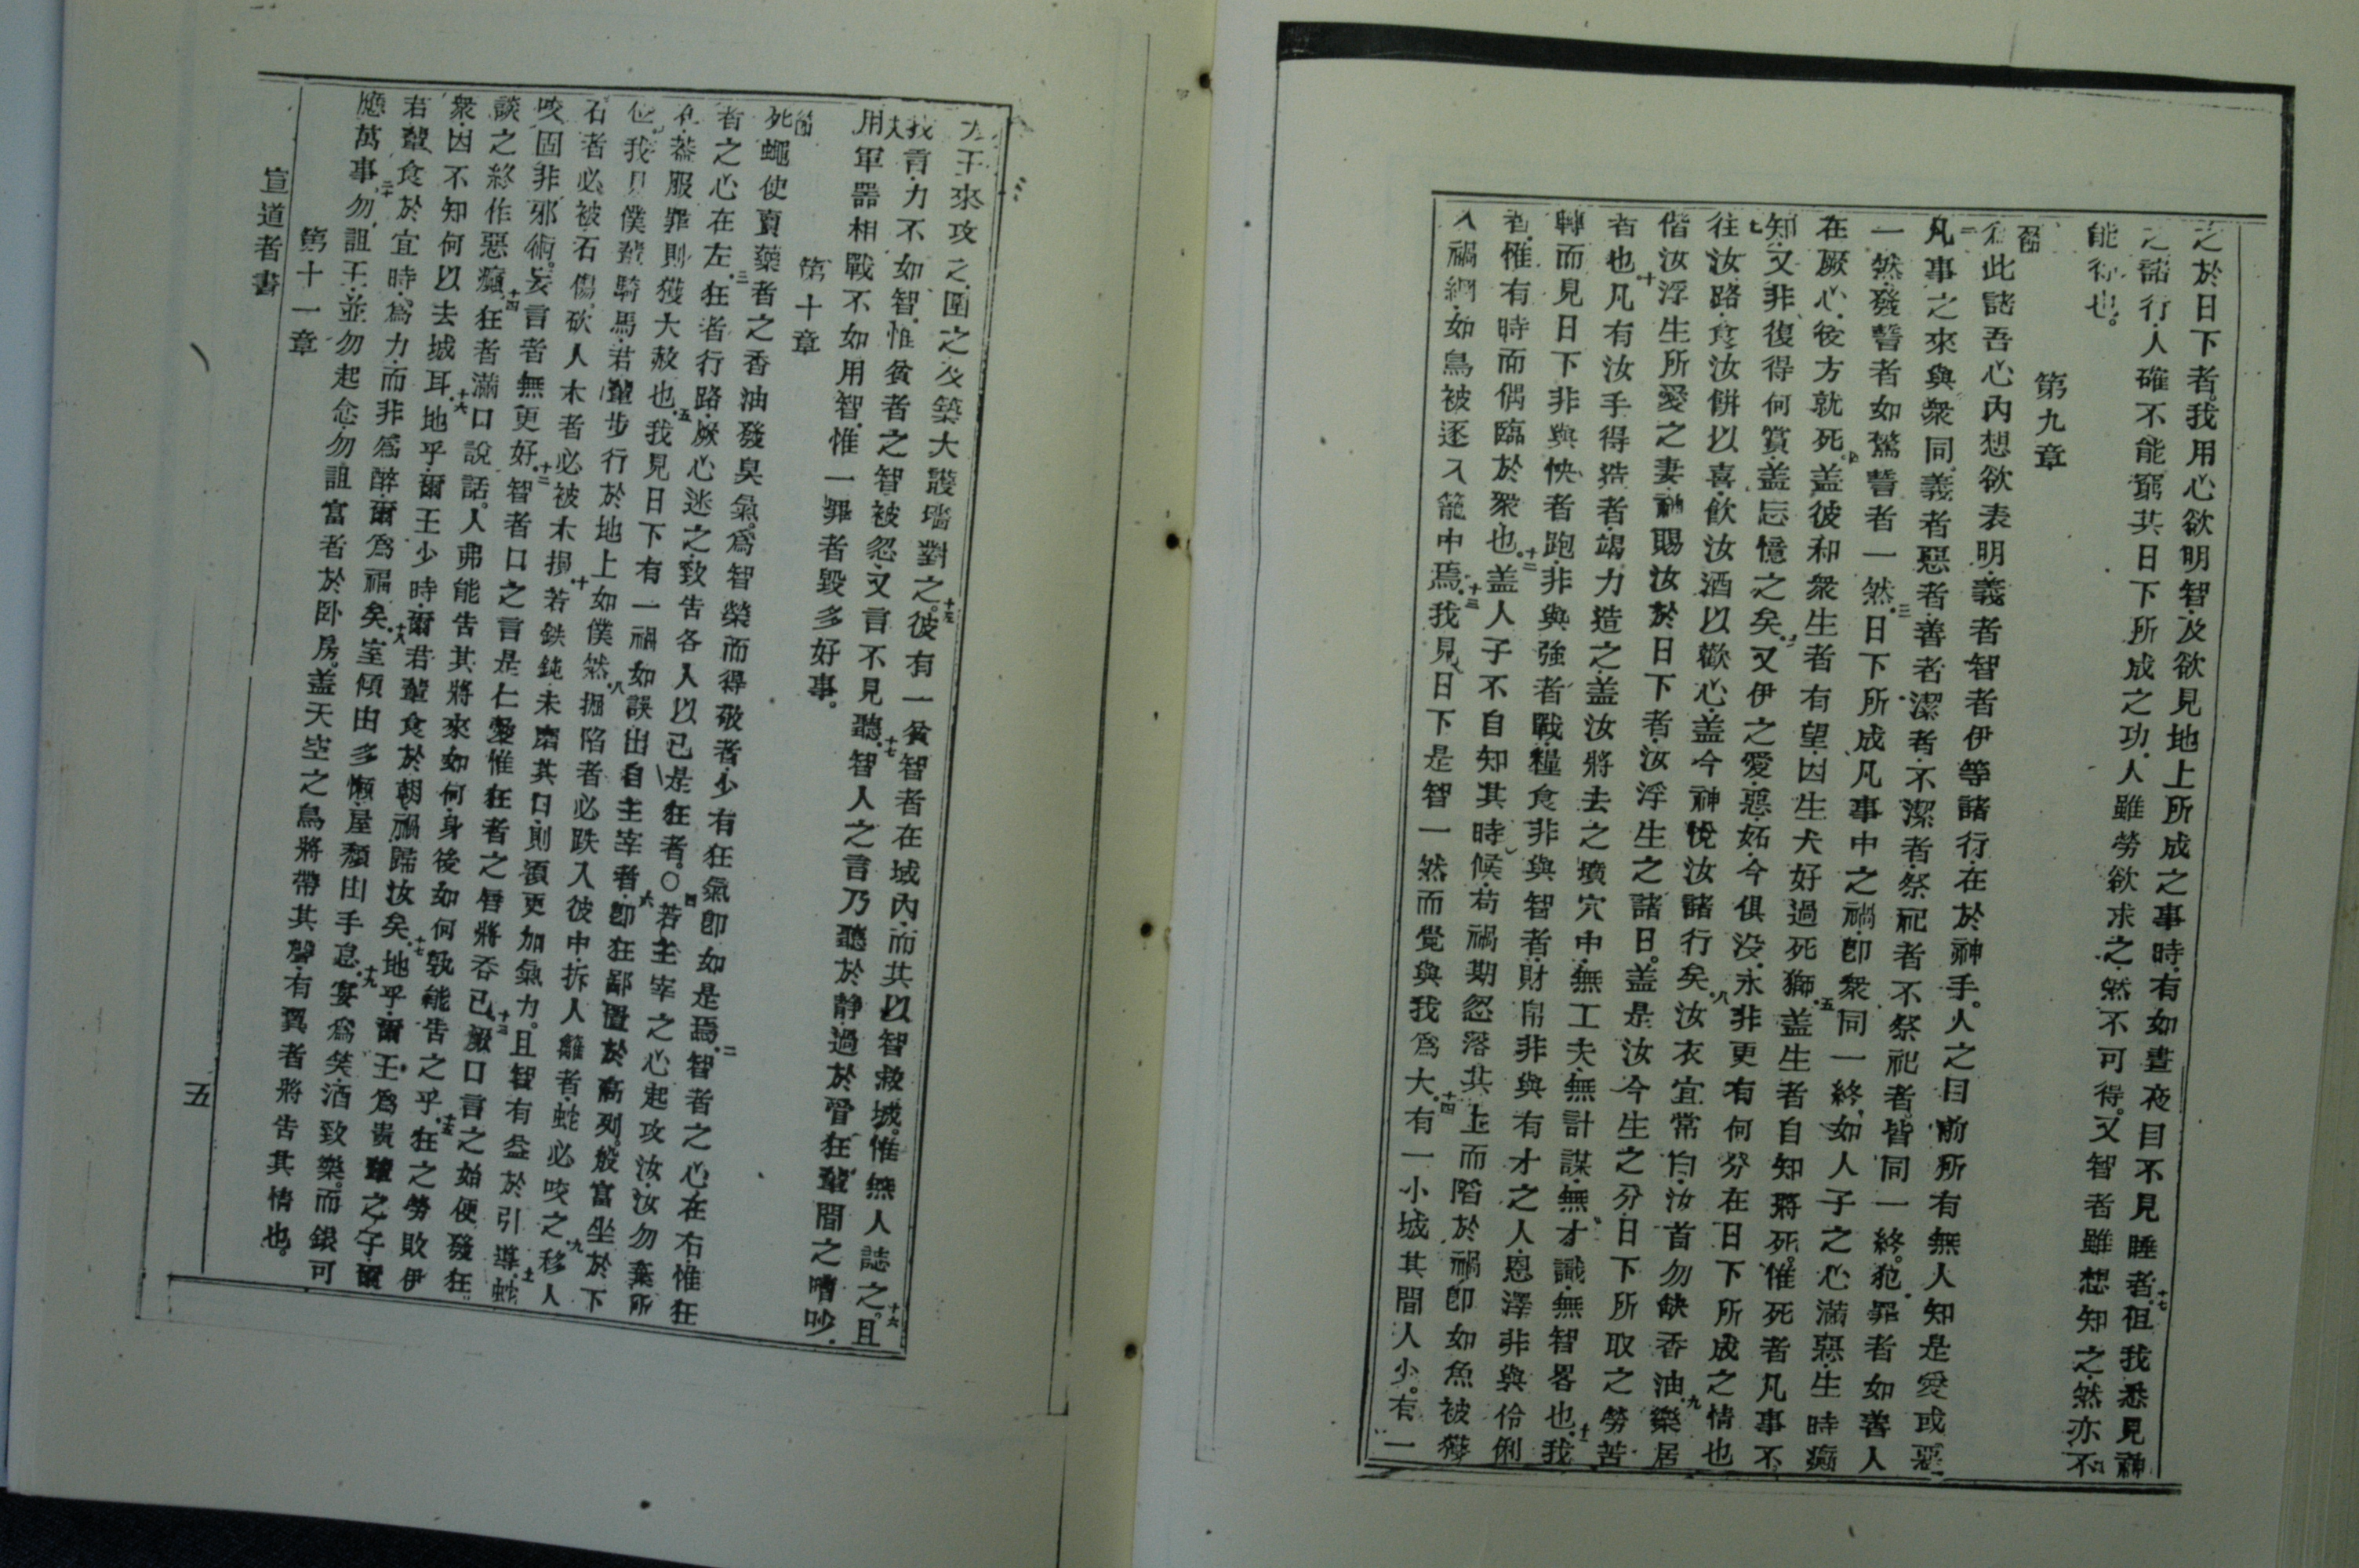 之於日下者。我用心欲明智、及欲見地上所成之事時、有如晝夜目不見睡者。十七但我悉見神
之諸行、人確不能窮其日下所成之功、人雖勞欲求之、然不可得。又智者雖想知之、然亦不
能得也。
第九章
節
此諸吾心內想欲表明、義者智者伊等諸行、在於神手。人之目前所有無人知是愛或惡
二凡事之來與衆同。義者惡者、善者潔者、不潔者、祭祀者不祭祀者。皆同一終。犯罪者如善人
一然。發誓者如驚誓者一然。三日下所成凡事中之禍、卽衆同一終、如人子之心滿惡、生時癲
在厥心、後方就死。四盖彼和衆生者有望、因生犬好過死獅。五盖生者自知將死。惟死者凡事不
知、又非復得何賞、盖忘憶之矣。又伊之愛、惡、妬、今俱没、永非更有何分在日下所成之情也
七往汝路、食汝餅以喜、飲汝酒以歡心、盖今神悅汝諸行矣。八汝衣宜常白、汝首勿缺香油。九樂居
偕汝浮生所愛之妻、神賜汝於日下者、汝浮生之諸日。盖是汝今生之分、日下所取之勞苦
者也。十凡有汝手得造者、竭力造之、盖汝將去之墳穴中、無工夫、無計謀、無才識、無智畧也。十一我
轉而見日下非與快者跑、非與強者戰、糧食非與智者、財帛非與有才之人、恩澤非與伶俐
者、惟有時而偶臨於衆也。十二盖人子不自知其時候、苟禍期忽落其上而陷於禍、卽如魚被獲
入禍網、如鳥被逐入籠中焉。十三我見日下是智一然而覺與我爲大。十四有一小城其間人少。有一
大王來攻之、圍之及築大護墻對之。十五彼有一貧智者在城內、而其以智救城。惟無人誌之。十六且
我言、力不如智、惟貧者之智被忽、又言不見聽。十七智人之言乃聽於静、過於督狂輩間之嘈吵、
十八用軍器相戰不如用智、惟一罪者毀多好事。
第十章
節
死蠅使賣藥者之香油發臭氣。爲智榮而得敬者、少有狂氣卽如是焉。二智者之心在右、惟狂
者之心在左。三狂者行路、厥心迷之、致告各人以已是狂者。○四若主宰之心起攻汝、汝勿棄所
在、盖服罪則獲大赦也。五我見日下有一禍如誤出自主宰者、六卽狂鄙置於高列。般富坐於下
位。我見僕輩騎馬、君輩步行於地上如僕然。八掘陷者必跌入彼中、拆人籬者、蛇必咬之。九移人
石者必被石傷、砍人木者必被木損。十若鉄鈍未磨其口、則須更加氣力。且智有益於引導。十一蛇
咬固非邪術。妄言者無更好。十二智者口之言是仁愛、惟狂者之唇將吞已。十三厥口言之始便發狂
談之終作惡癲。十四狂者滿口說話。人弗能告其將來如何、身後如何孰能告之乎。十五狂之勞敗伊
衆、因不知何以去城耳。十六地乎、爾王少時、爾君輩食於朝、禍歸汝矣。十七地乎、爾王爲貴輩之子、爾
君輩食於宜時、爲力、而非爲醉、爾爲福矣。十八室傾由多懶、屋頽由手息。十九宴爲笑、酒致樂。而銀可
應萬事。二十勿詛王、並勿起念、勿詛富者於卧房。盖天空之鳥將帶其聲、有翼者將告其情也。
第十一章
宣道者書
五